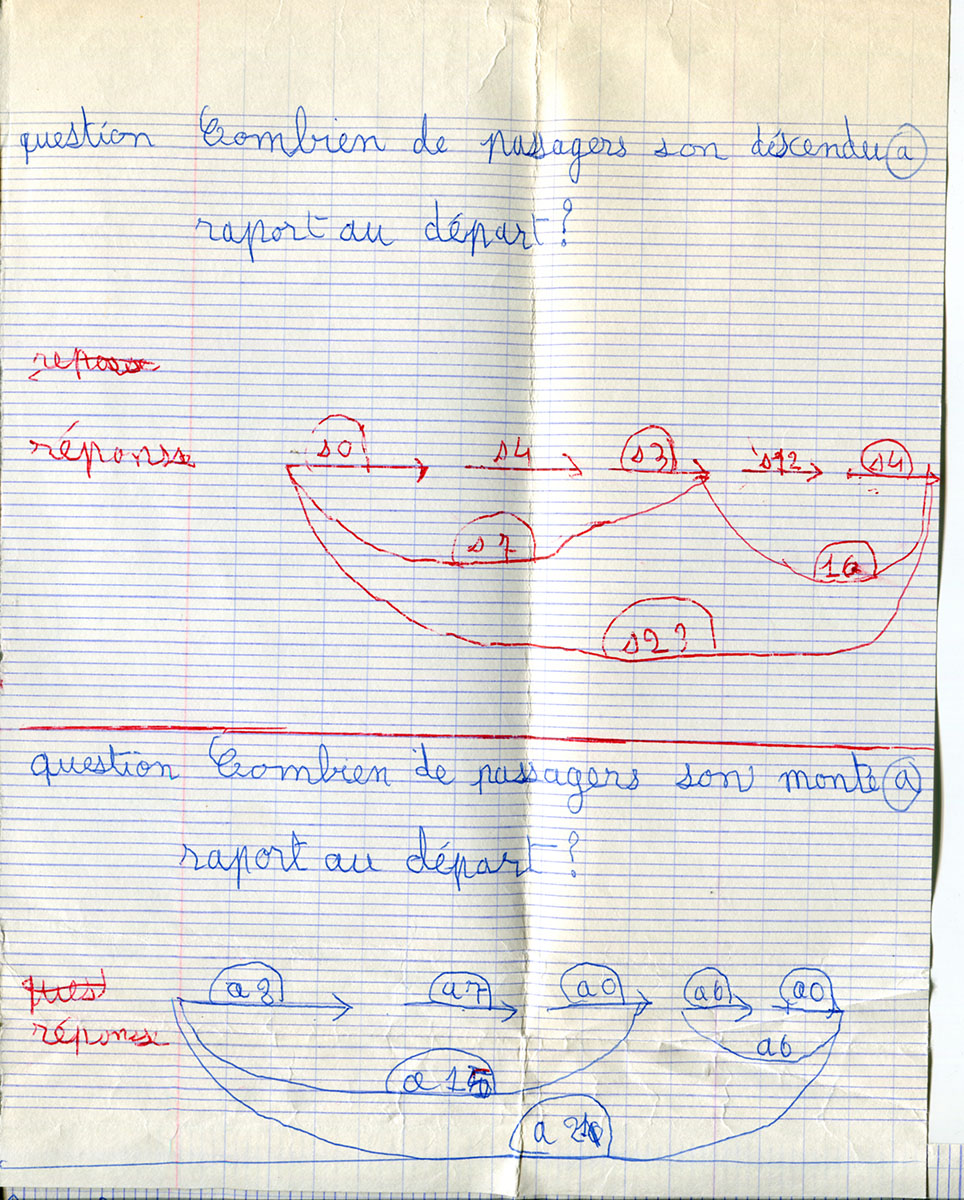 question Combien de passagers son déscendu à
raport au départ?
réponse s0 s4 s3 s12 s4
s7 16
s2?
question Combien de passagers son monté à
raport au départ?
ques
réponse a8 a7 a0 a6 a0
a6
a15
a21